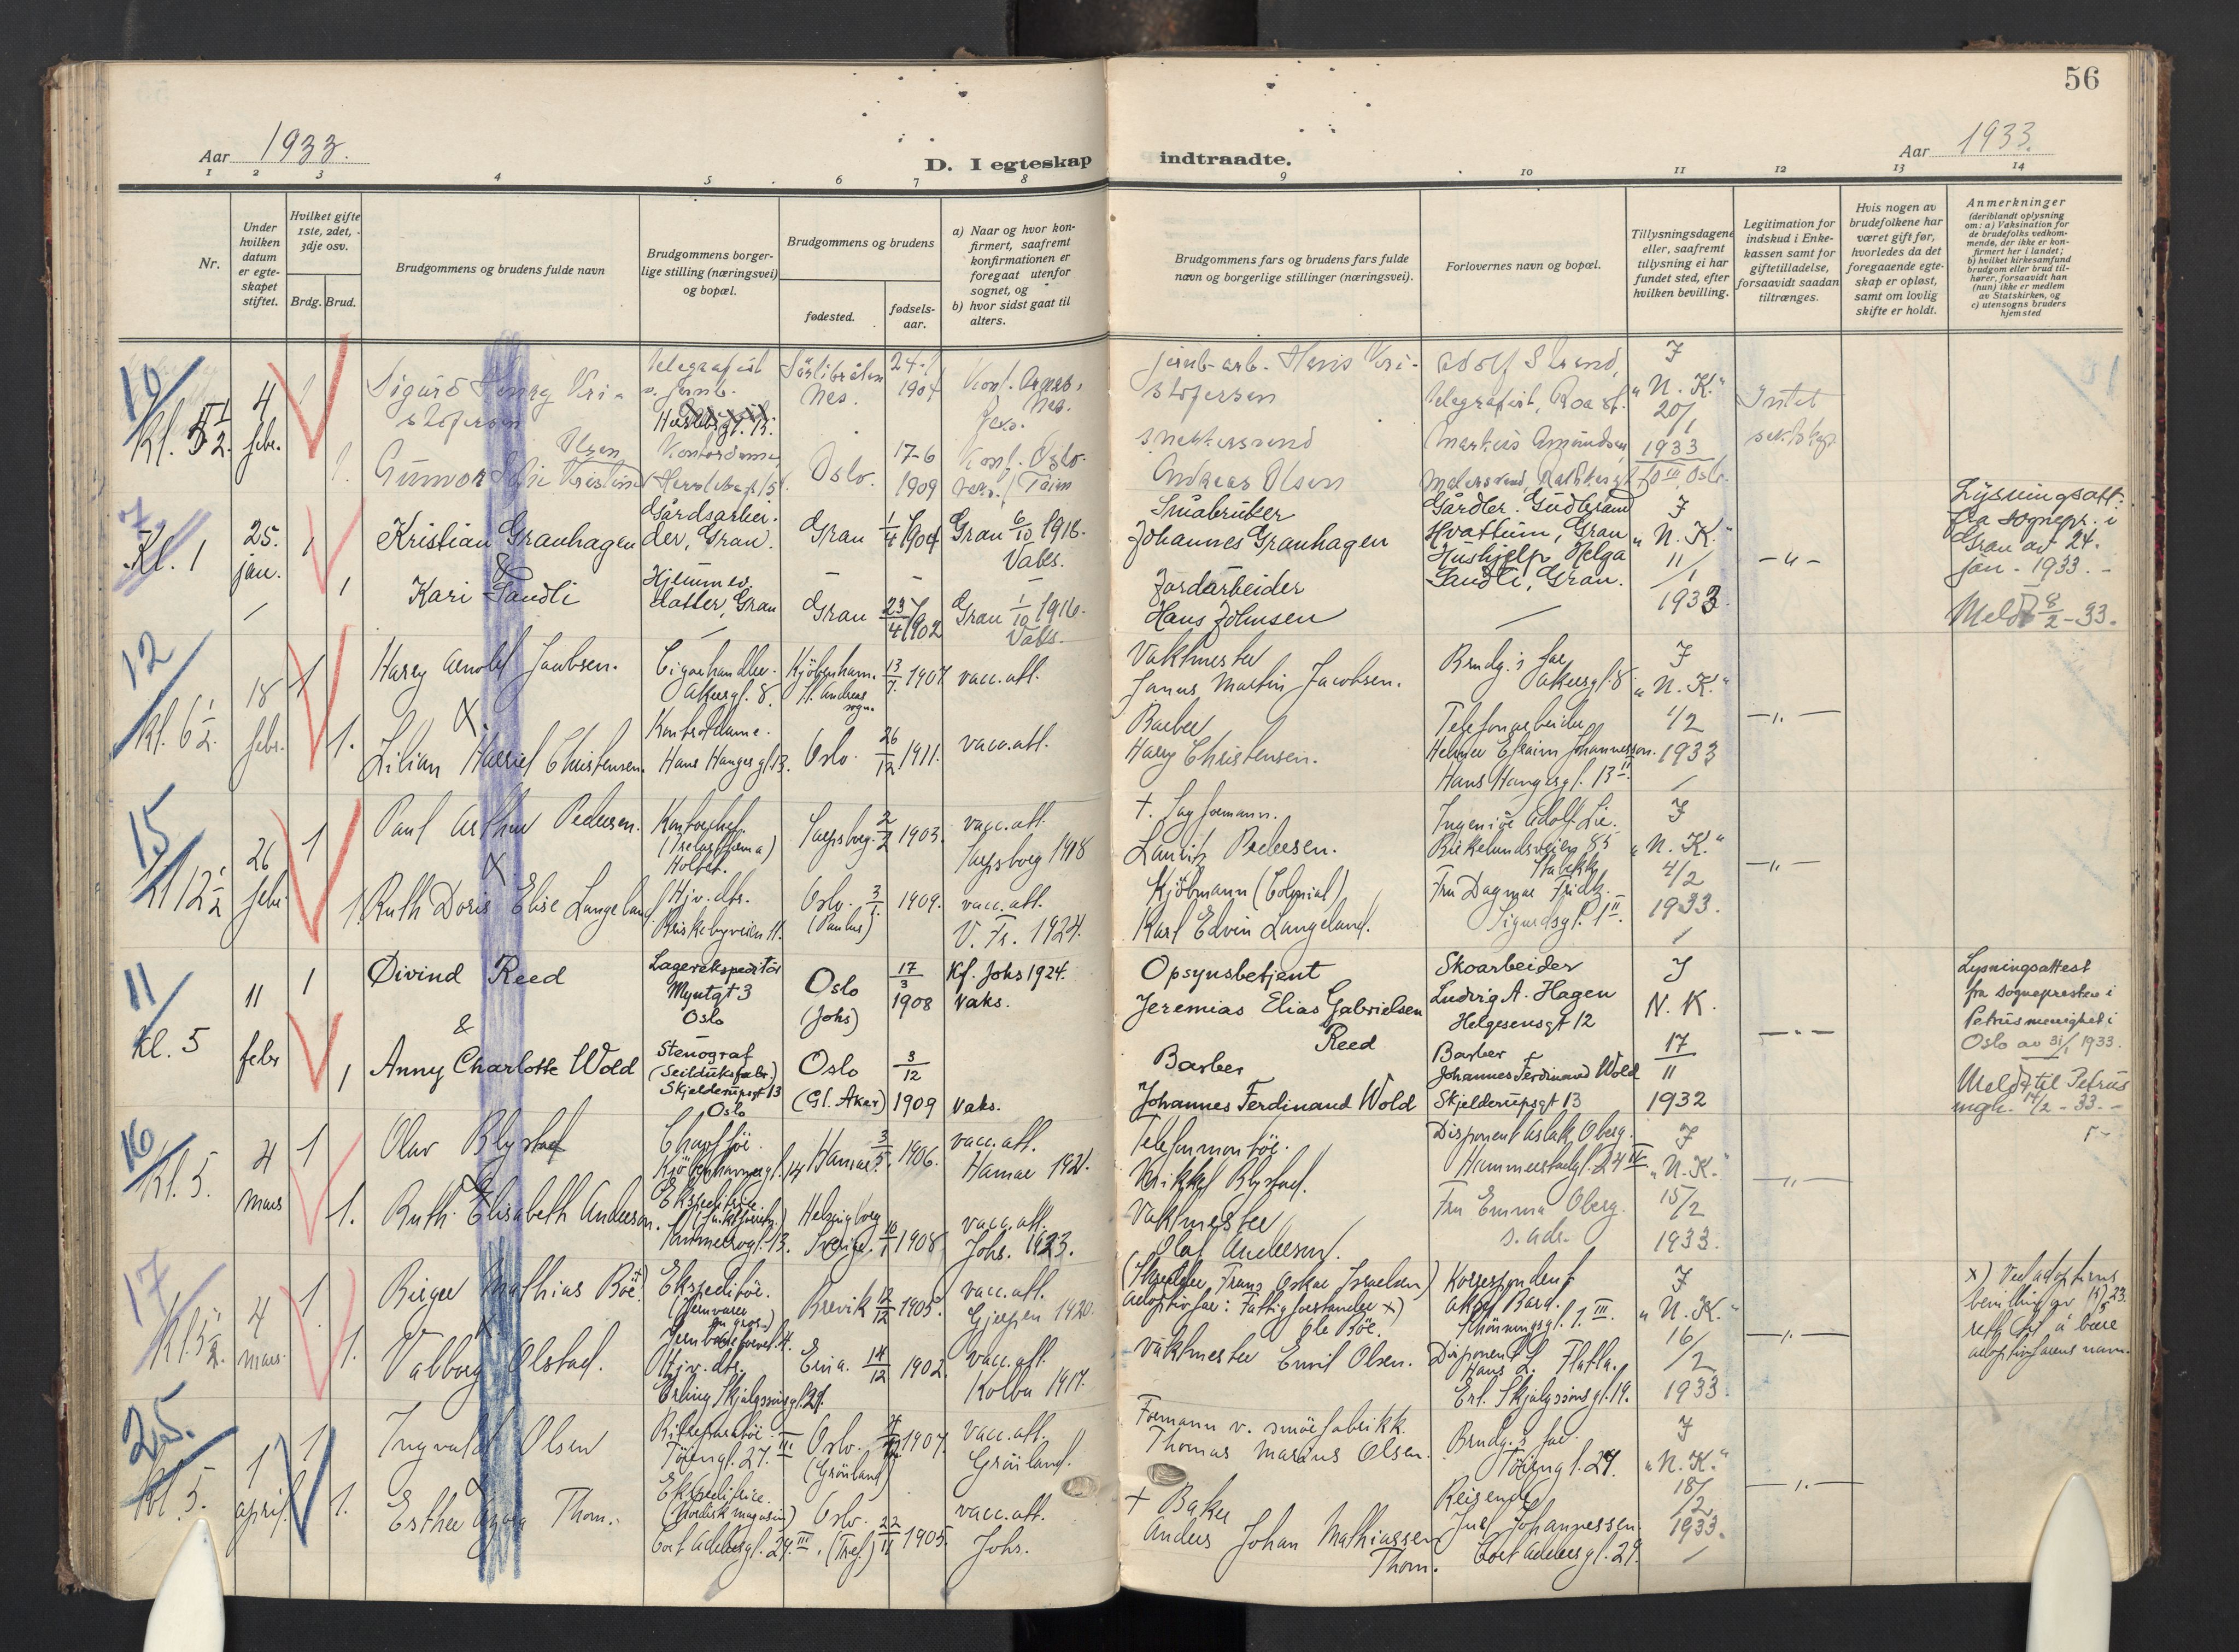 56
Aar 1933.
D. I egteskap indtraadte.
Aar 1933.
1 2 3 4 5 6 7 8 9 10 11 12 13 14
Nr.
Under
hvilken
datum
er egte-
skapet
stiftet.
Hvilket gifte
1ste, 2det,
3dje osv.
Brdg. Brud.
Brudgommens og brudens fulde navn
Brudgommens borger-
lige stilling (næringsvei)
og bopæl.
Brudgommens og brudens
fødested.
fødsels-
aar.
a) Naar og hvor kon-
firmert, saafremt
konfirmationen er
foregaat utenfor
sognet, og
b) hvor sidst gaat til
alters.
Brudgommens fars og brudens fars fulde
navn og borgerlige stillinger (næringsvei).
Forlovernes navn og bopæl.
Tillysningsdagene
eller, saafremt
tillysning ei har
fundet sted, efter
hvilken bevilling.
Legitimation for
indskud i Enke-
kassen samt for
giftetilladelse,
forsaavidt saadan
tiltrænges.
Hvis nogen av
brudefolkene har
været gift før,
hvorledes da det
foregaaende egte-
skap er opløst,
samt om lovlig
skifte er holdt.
Anmerkninger
(deriblandt oplysning
om: a) Vaksination for
de brudefolks vedkom-
mende, der ikke er kon-
firmert her i landet;
b) hvilket kirkesamfund
brudgom eller brud til-
hører, forsaavidt han
(hun) ikke er medlem
av Statskirken, og
c) utensogns bruders
hjemsted
10
4
febr.
1
Sigurd Henry Kri-
stofersen
Telegrafist
Nes.
24-1
1904
Konf.
Nes.
jernb-arb. Hans Kri-
stofersen
Adolf Strand,
Telegrafist, Roa st.
J
"N. K."
20/1
1933
Intet
1.
Gunvor
Olsen
Kontordame
Oslo.
17-6
1909
Konf. Oslo.
Andreas Olsen
Markus Amundsen
7.
Kl. 1
25.
jan.
1
Kristian Granhagen
&
Gårdsarbei-
der, Gran.
Gran
1/4 1904
Gran 6/10 1918.
Vaks.
Småbruker
Johannes Granhagen
Gårdbr. Gudbrand
Hvattum, Gran
J
"N. K."
11/1
1933.
- " -
Lysningsatt.
fra sognepr. i
Gran av 24.
jan - 1933. -
Meldt 8/2 - 33.
1
Kari Sandli
Hjemmev.
datter, Gran
Gran
23/4 1902
Gran 1/10 1916.
Vaks.
Jordarbeider
Hans Johnsen
Hushjelp Helga
Sandli, Gran.
12
Kl. 6 1/2.
18
febr.
1
Harry Arnold Jacobsen.
&
Cigarhandler.
Akersgt. 8.
Kjöbenhavn.
St. Andreas
sogn.
13/7 1907
vacc. att.
Vaktmester
Janus Martin Jacobsen.
Brudg.s far
Akersgt. 8
J
"N. K."
4/2
1933
- " -
1.
Lilian Harriet Christensen.
Kontordame.
Hans Haugesgt. 13.
Oslo.
26/12 1911.
vacc. att.
Barber
Harry Christensen.
Telefonarbeider
Helmer Efraim Johannesson.
Hans Haugesgt. 13 II.
15
Kl 12 1/2
26
febr.
1
Paul Arthur Pedersen.
&
Kontorchef.
Holtet.
Sarpsborg.
2/2 1903.
vacc. att.
Sarpsborg 1918
Lauritz Pedersen.
Ingeniør Adolf Lie.
Birkelundsveien 85
Stabekk
J
"N. K."
4/2
1933.
- " -
1
Ruth Doris Elise Langeland
Hjv. dtr.
Briskebyveien 11.
Oslo.
(Paulus)
1909.
vacc. att.
V. Fr. 1924.
Kjöbmann (Colonial)
Karl Edvin Langeland.
Fru Dagmar Fridtz.
Sigurdsgt. 1 II.
11
Kl. 5
11
febr
1
Øivind Reed
&
Lagerekspeditør
Myntgt 3
Oslo
Oslo
(Johs)
17/3
1908
Kf. Johs 1924.
Vaks.
Opsynsbetjent
Jeremias Elias Gabrielsen
Reed
Skoarbeider
Ludvig A. Hagen
Helgesensgt 12
J
N. K.
17/11
1932
- " -
Lysningsattest
fra sognepresten i
Petrus menighet i
Oslo av 31/1 1933.
Meldt til Petrus
mgh. 14/2 - 33. -
1
Anny Charlotte Wold
Stenograf
(Seildúksfabr.)
Skjelderúpsgt 13
Oslo
Oslo
(Gl. Aker)
3/12
1909
Vaks.
Barber
Johannes Ferdinand Wold
Barber
Johannes Ferdinand Wold
Skjelderúpsgt 13
16
Kl. 5.
4
mars
1
Olav Blystad
&
Chauffør.
Kjöbenhavnergt. 14
Hamar.
3/5 1906.
vacc. att.
Hamar 1921.
Telefonmontør.
Mikkel Blystad.
Disponent Aslak Oberg.
Hammerstadgt. 24 IV
J
"N. K."
15/2
1933.
- " -
1.
Ruth Elisabeth Andersen.
Ekspeditrice
Helsingborg
Sverige.
10/1 1908
vacc. att.
Johs. 1923.
Vaktmester
Olaf Andersen.
Fru Emma Oberg.
s. adr.
17
Kl 5 1/2.
4
mars.
1.
Birger Mathias Böe x)
&
Ekspeditør.
(Jernvarer
en gros.)
Brevik
12/12 1905.
vacc. att.
Gjerpen 1920.
(Skredder Frans Oskar Israelsen)
Adoptivfar: Fattigforstander x)
Ole Böe.
Korrespondent
Aksel Bard.
Schöningsgt. 1 III.
J
"N. K."
16/2
1933.
- " -
x) Ved adoptions
bevilling av 15/5 23.
rett til å bære
adoptivfarens navn.
1.
Valborg Olstad.
Hjv. dtr.
Erling Skjalgssonsgt. 29.
Eina.
14/12 1902.
vacc. att.
Kolbu 1917.
Vaktmester Emil Olsen.
Disponent
Hans L. Flatla.
Erl. Skjalgssonsgt. 19.
25.
Kl. 5.
1
april.
1
Ingvald Olsen
&
Töiengt. 27. III
Oslo.
(Grönland)
1907.
vacc. att.
Grönland.
Formann v. smörfabrikk.
Thomas Marius Olsen.
Brudg.s far.
Töiengt. 27.
J
"N. K."
18/2
1933.
- " -
1.
Esther Thom.
Ekspeditrice.
(Nordisk magasin)
Cort Adelersgt. 29. III.
Oslo.
(Tref.)
22/11 1905.
vacc. att.
Johs.
+ Baker
Anders Johan Mathiassen
Thom.
Reisende
Juel Johannessen.
Cort Adelersgt. 29.